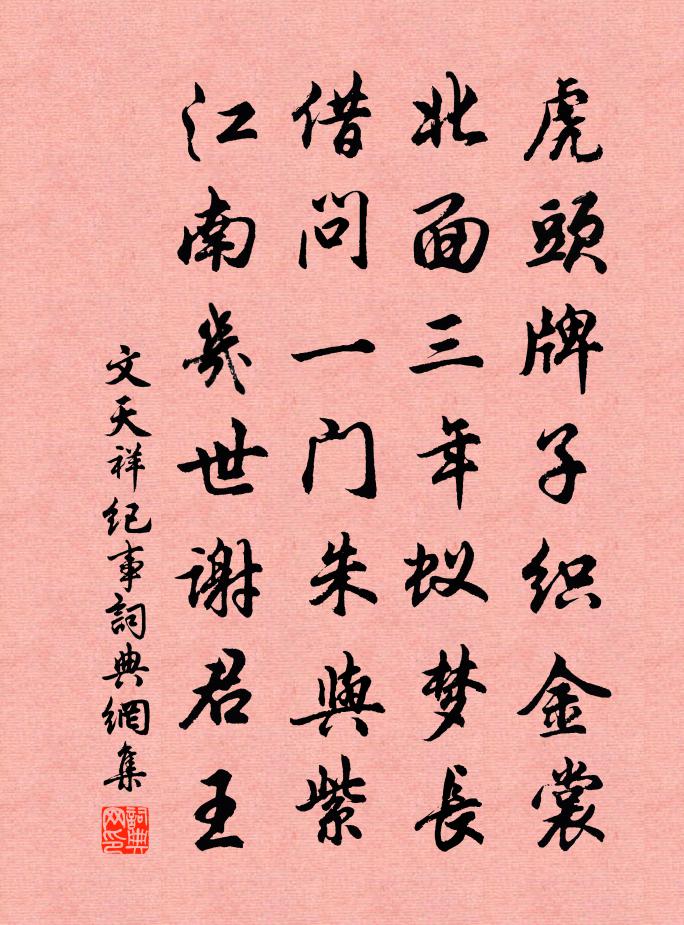 虎頭牌子织金裳
北面三年蚁梦長
借问一门朱與紫
江南幾世谢君王
文天祥纪事詞典網集
詞典网印